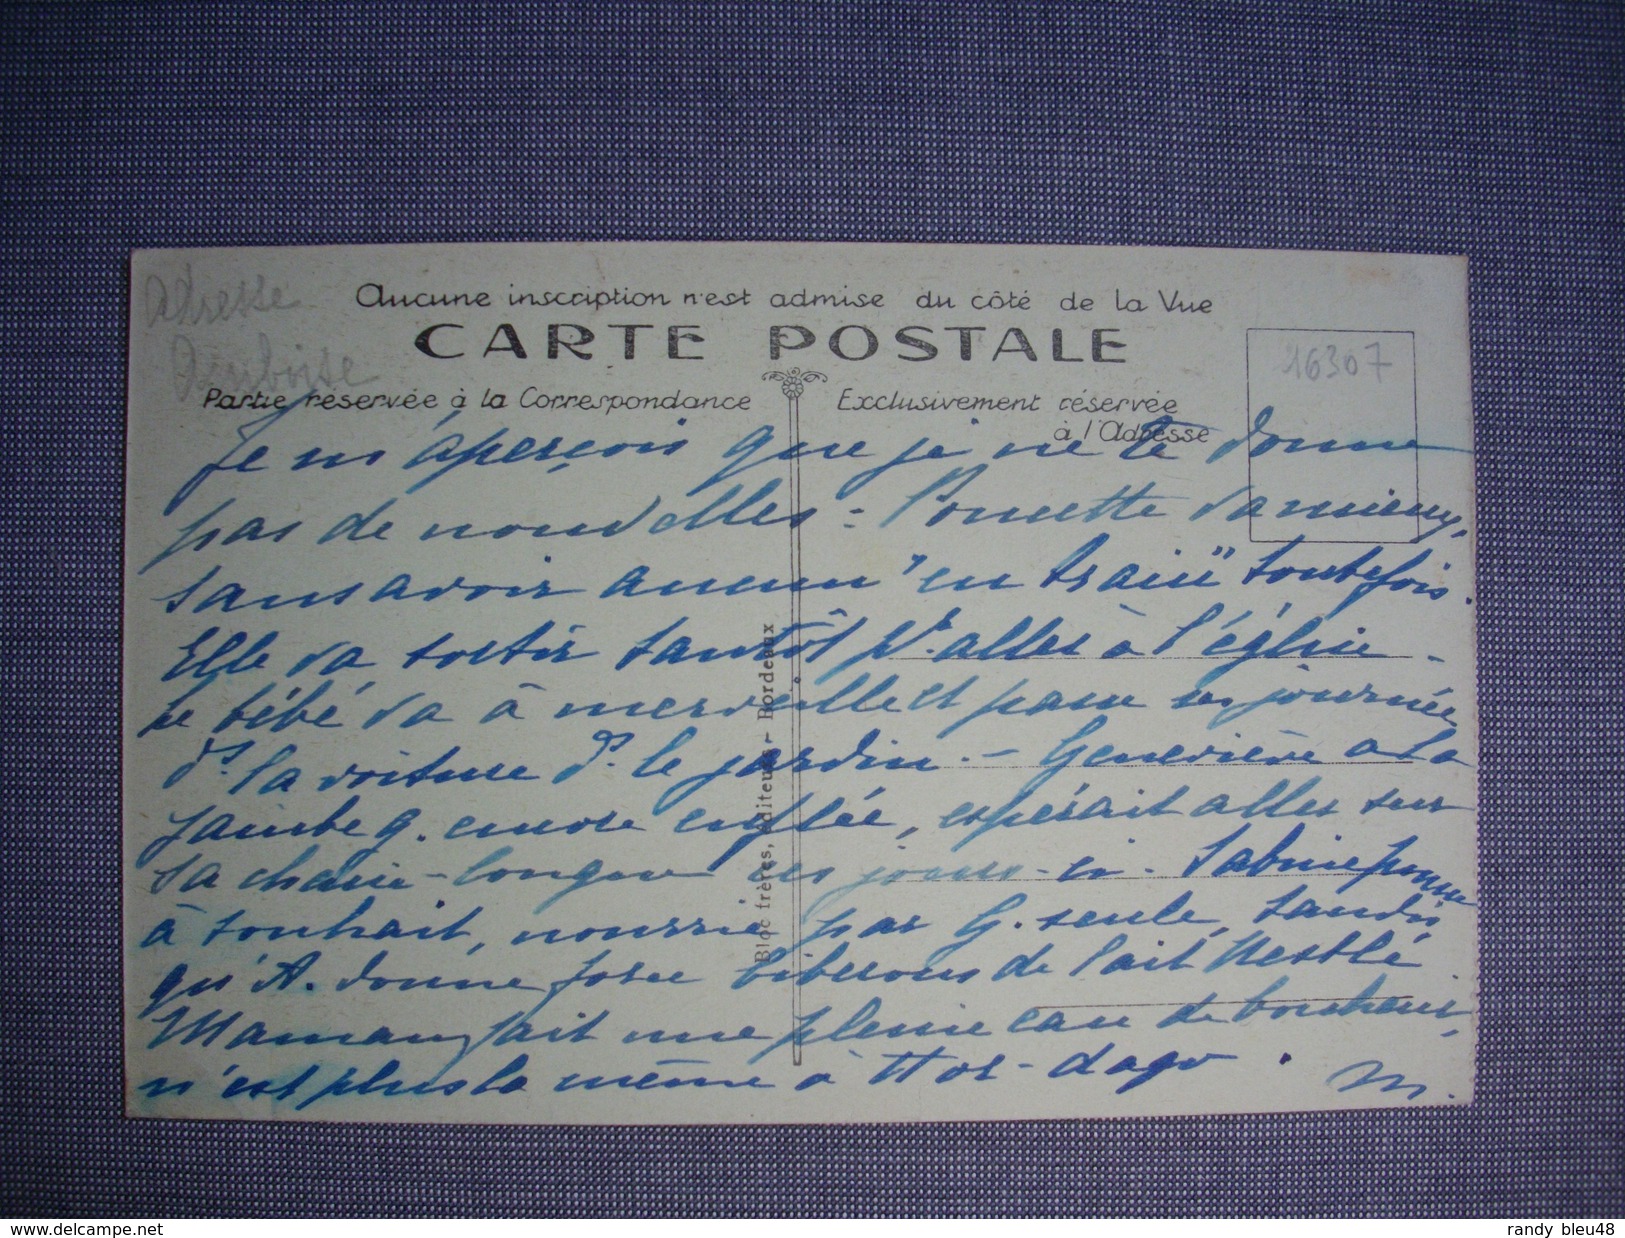 Adresse
Aucune inscription n'est admise du côté de la Vue
CARTE POSTALE
16307
Partie réservée à la Correspondance
Exclusivement réservée
à l'Adresse
Je m'aperçois que je ne te donne
pas de nouvelles = Ponette va mieux,
sans avoir aucun "en train" toutefois.
Elle va sortir tantôt pr. aller à l'église -
le bébé va à merveille et passe ses journées
ds. la voiture ds. le jardin. - Geneviève a la
jambe g. encore enflée, espérait aller sur
sa chaise-longue ces jours-ci. Sabine pousse
à souhait, nourrie par G. seule, tandis
qu'A. donne force biberons de lait Nestlé
Maman fait une pleine eau de bonheur,
n'est plus la même à Hor-dago.
M.
Bloc frères, éditeurs - Bordeaux
delcampe.net
randy_bleu48